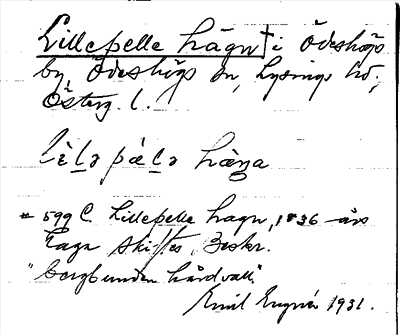 Lillepelle hägn † i Ödeshögs
by, Ödeshögs sn, Lysings hd,
Österg. l.
lìlə pæ̀lə hæŋa
= 599 C. Lillepelle hagn, 1836 års
Laga Skiftes Beskr.
"bergbunden hårdvall"
Emil 1931.